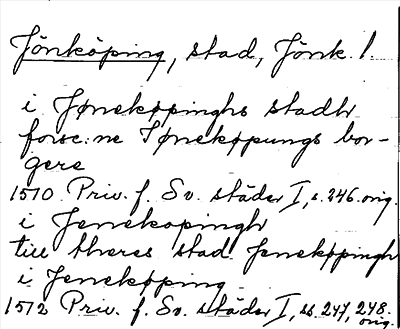 Jönköping, stad, Jönk. l.
i Jønekøpinghs stadh
forsc:ne Jønekøpungs bor-
gere
1570 Priv. f. Sv. städer I, s. 246. orig.
i Jenekopingh
till theres stad Jenekøpingh
i Jenekøping
1572 Priv. f. Sv. städer I, ss. 247, 248. orig.